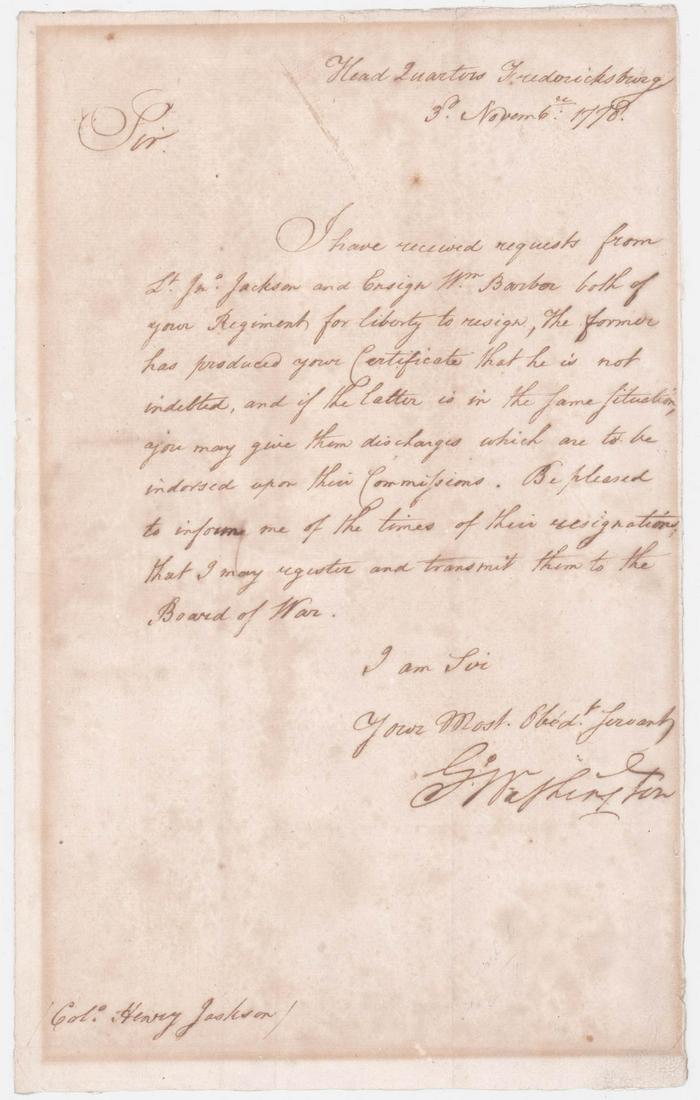 Head Quarters Fredericksburg
3d. Novembr. 1778.
Sir.
I have received requests from
Lt. Jno. Jackson and Ensign Wm Barber both of
your Regiment for liberty to resign, The former
has produced your Certificate that he is not
indebted, and if the latter is in the same situation,
you may give them discharges which are to be
indorsed upon their Commissions. Be pleased
to inform me of the times of their resignations,
that I may register and transmit them to the
Board of War.
I am Sir
Your Most. Obedt. Servant
Go. Washington
(Colo. Henry Jackson)